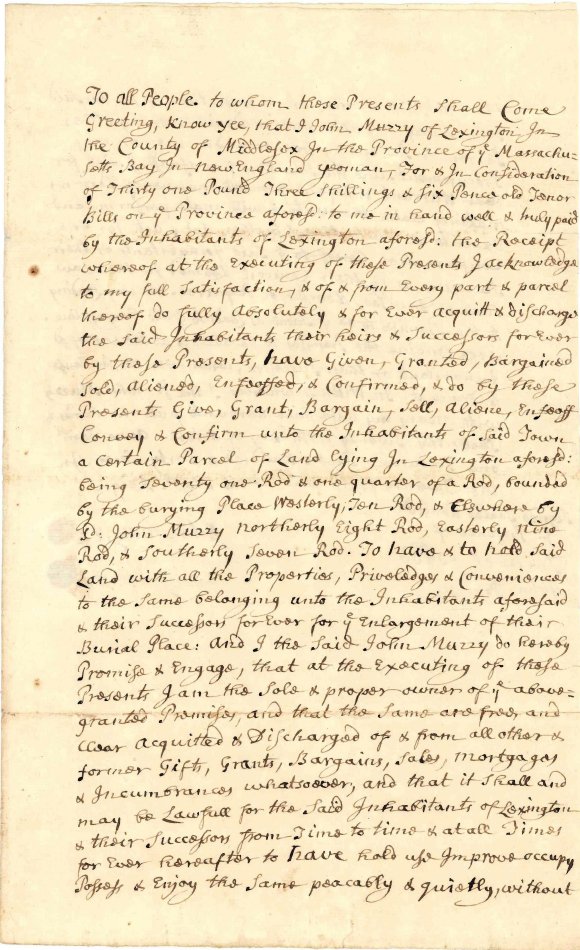 To all People to whom these Presents Shall Come
Greeting, Know yee, that I John Muzzy of Lexington, In
the County of Middlesex In the Province of ye Massachu-
setts Bay In NewEngland yeoman, For & In Consideration
of Thirty one Pound Three Shillings & Six Pence old Tenor
Bills on ye Province aforesd: to me in hand well & truly paid
by the Inhabitants of Lexington aforesd: the Receipt
whereof at the Executing of these Presents I acknowledge
to my full Satisfaction, & of & from Every part & parcel
thereof do fully Absolutely & for Ever acquitt & discharge
the Said Inhabitants their heirs & Successors for Ever
by these Presents, have Given, Granted, Bargained
Sold, Aliened, Enfeoffed, & Confirmed, & do by these
Presents Give, Grant, Bargain, Sell, Aliene, Enfeoff
Convey & Confirm unto the Inhabitants of Said Town
a Certain Parcel of Land Lying In Lexington aforesd:
being Seventy one Rod & one quarter of a Rod, bounded
by the burying Place Westerly, Ten Rod, & Elswhere by
Sd: John Muzzy Northerly Eight Rod, Easterly Nine
Rod, & Southerly Seven Rod. To have & to hold Said
Land with all the Properties, Priveledges & Conveniences
to the Same belonging unto the Inhabitants aforesaid
& their Successors for Ever for ye Enlargement of their
Burial Place: And I the Said John Muzzy do hereby
Promise & Engage, that at the Executing of these
Presents I am the Sole & proper owner of ye above-
granted Premises, and that the Same are free, and
Clear Acquitted & Discharged of & from all other &
former Gifts, Grants, Bargains, Sales, Mortgages
& Incumbrances whatsoever, and that it Shall and
may be Lawfull for the Said Inhabitants of Lexington
& their Successors from Time to time & at all Times
for Ever hereafter to have hold use Improve occupy
Possess & Enjoy the Same peacably & quietly, without